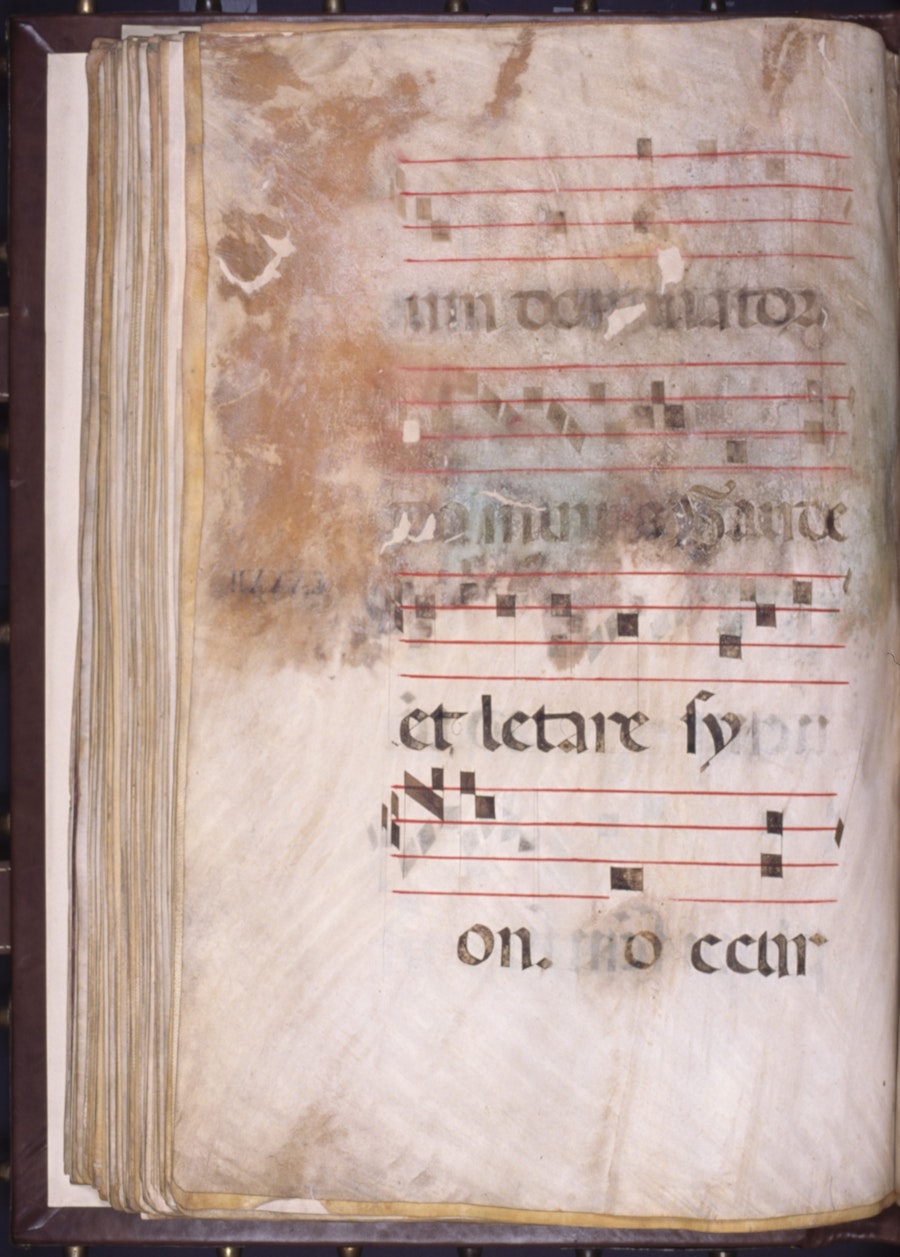 um dominator
dominus Gaude
et letare sy
on. o ccur